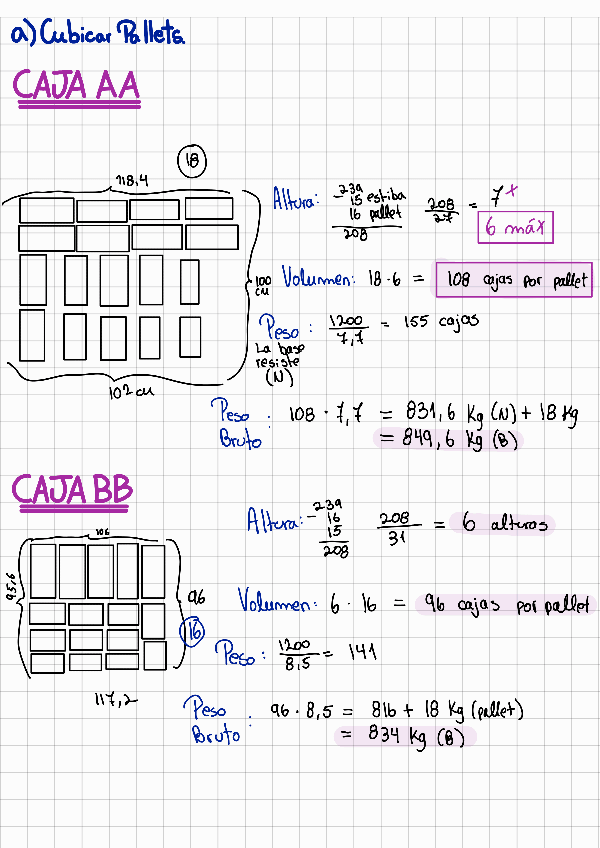 a) Cubicar Pallets
CAJA AA
18
118,4
100 cm
102 cm
Altura: - 239
15 estiba
16 pallet
208
208/27 = 7 x
6 máx
Volumen: 18 · 6 = 108 cajas por pallet
Peso: 1200/7,7 = 155 cajas
La base
resiste
(N)
Peso Bruto: 108 · 7,7 = 831,6 Kg (N) + 18 Kg
= 849,6 Kg (B)
CAJA BB
106
95,6
96
16
117,2
Altura: - 239
16
15
208
208/31 = 6 alturas
Volumen: 6 · 16 = 96 cajas por pallet
Peso: 1200/8,5 = 141
Peso Bruto: 96 · 8,5 = 816 + 18 Kg (pallet)
= 834 Kg (B)